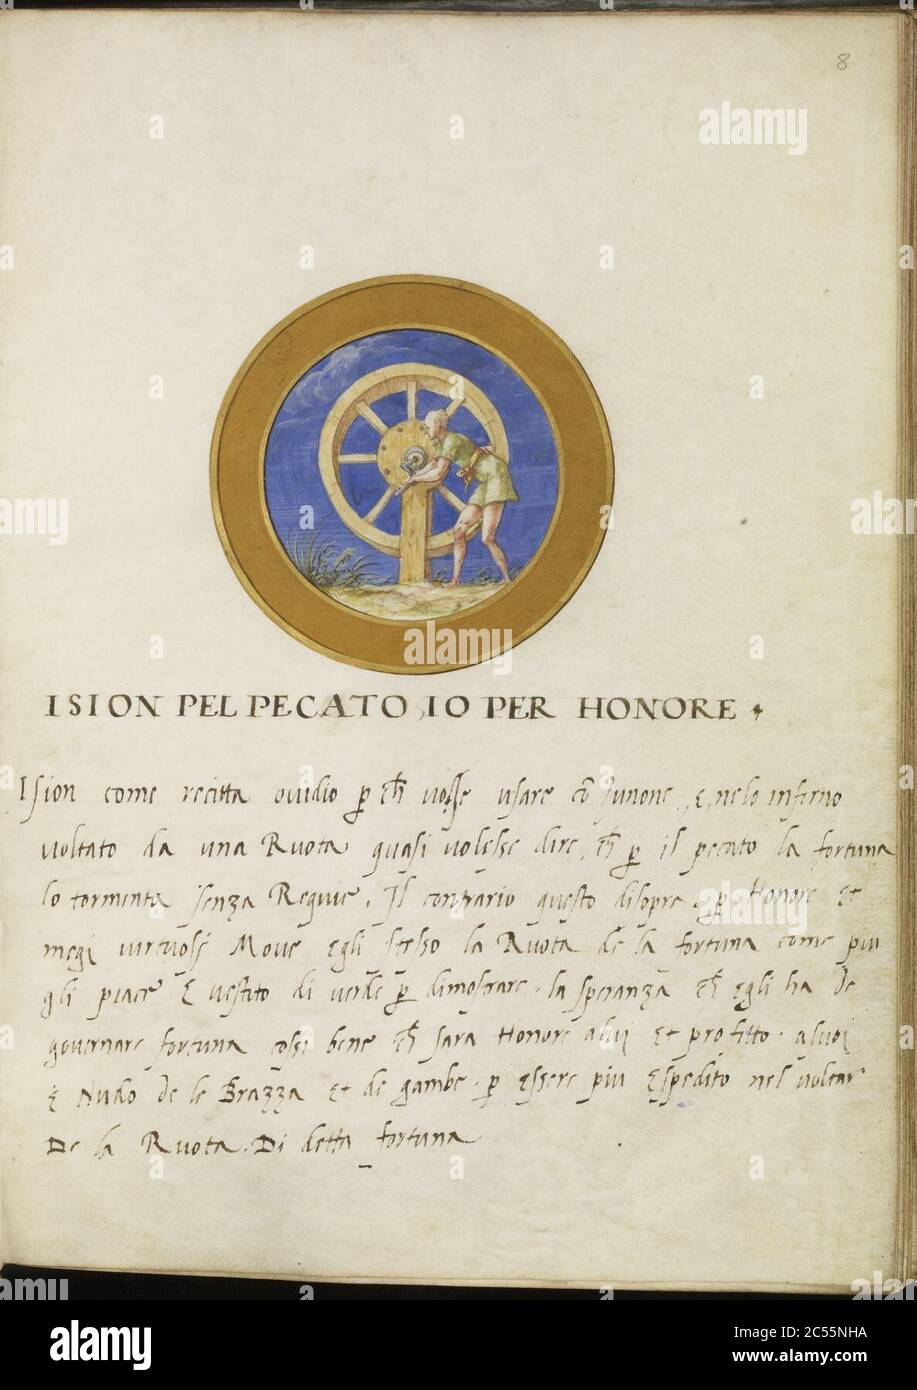 8
ISION PEL PECATO, IO PER HONORE
Ision come recitta ovidio p ch volsse usare cō Junone, e, nelo infirno
voltato da una Ruota quasi volesse dire, ch p il pecato la fortuna
lo tormenta senza Requie. Il contrario questo disopre. p Honore et
megi virtuosi Move egli stesso la Ruota de la fortuna come piu
gli piace E vestito di verde p dimostrare la speranza ch egli ha de
governare fortuna cossi bene ch sara Honore alui et profitto asuoi
E Nudo de le Brazza et de gambe p essere piu Espedito nel voltar
De la Ruota Di detta fortuna
alamy
Image ID: 2C55NHA
www.alamy.com